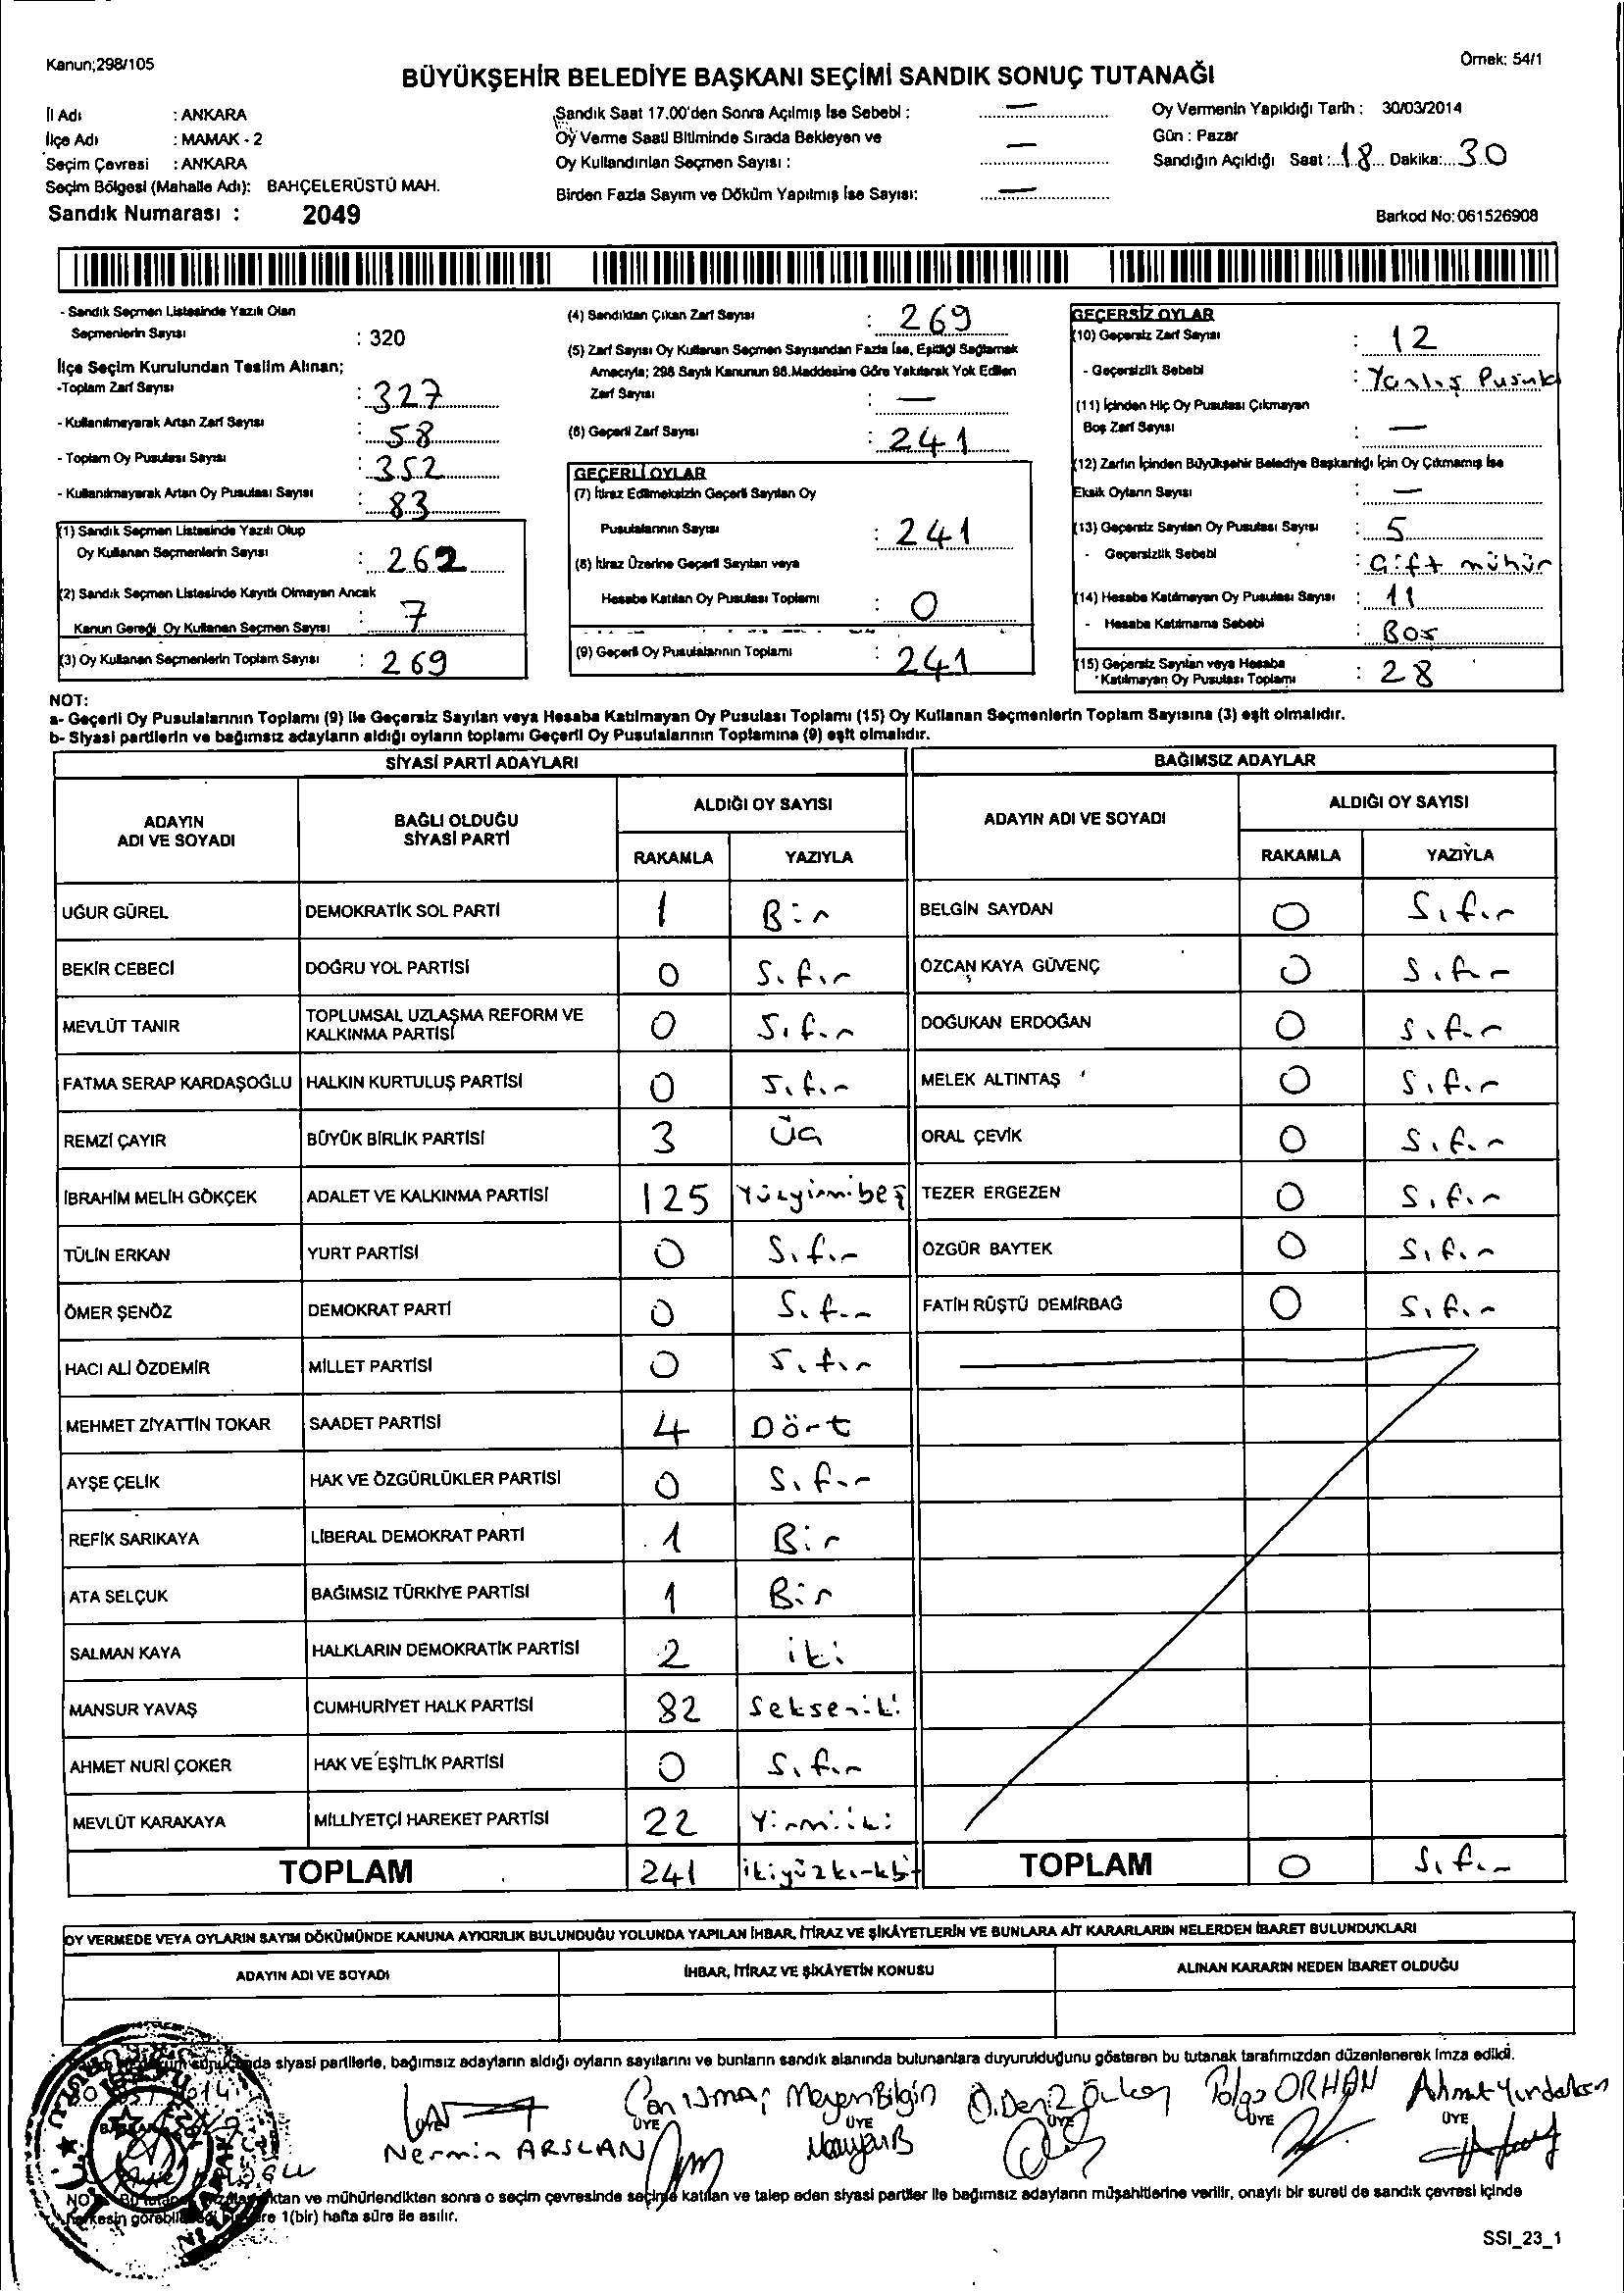 Kanun;298/105
Örnek: 54/1
BÜYÜKŞEHİR BELEDİYE BAŞKANI SEÇİMİ SANDIK SONUÇ TUTANAĞI
İl Adı : ANKARA
İlçe Adı : MAMAK - 2
Seçim Çevresi : ANKARA
Seçim Bölgesi (Mahalle Adı): BAHÇELERÜSTÜ MAH.
Sandık Numarası : 2049
Sandık Saat 17.00'den Sonra Açılmış İse Sebebi : —
Oy Verme Saati Bitiminde Sırada Bekleyen ve
Oy Kullandırılan Seçmen Sayısı : —
Birden Fazla Sayım ve Döküm Yapılmış İse Sayısı: —
Oy Vermenin Yapıldığı Tarih : 30/03/2014
Gün : Pazar
Sandığın Açıldığı Saat : 18 Dakika: 30
Barkod No: 061526908
- Sandık Seçmen Listesinde Yazılı Olan
Seçmenlerin Sayısı : 320
İlçe Seçim Kurulundan Teslim Alınan;
-Toplam Zarf Sayısı : 327
- Kullanılmayarak Artan Zarf Sayısı : 58
- Toplam Oy Pusulası Sayısı : 352
- Kullanılmayarak Artan Oy Pusulası Sayısı : 83
(1) Sandık Seçmen Listesinde Yazılı Olup
Oy Kullanan Seçmenlerin Sayısı : 262
(2) Sandık Seçmen Listesinde Kayıtlı Olmayan Ancak
Kanun Gereği Oy Kullanan Seçmen Sayısı : 7
(3) Oy Kullanan Seçmenlerin Toplam Sayısı : 269
(4) Sandıktan Çıkan Zarf Sayısı : 269
(5) Zarf Sayısı Oy Kullanan Seçmen Sayısından Fazla İse, Eşitliği Sağlamak
Amacıyla; 298 Sayılı Kanunun 98.Maddesine Göre Yakılarak Yok Edilen
Zarf Sayısı : —
(6) Geçerli Zarf Sayısı : 241
GEÇERLİ OYLAR
(7) İtiraz Edilmeksizin Geçerli Sayılan Oy
Pusulalarının Sayısı : 241
(8) İtiraz Üzerine Geçerli Sayılan veya
Hesaba Katılan Oy Pusulası Toplamı : 0
(9) Geçerli Oy Pusulalarının Toplamı : 241
GEÇERSİZ OYLAR
(10) Geçersiz Zarf Sayısı : 12
- Geçersizlik Sebebi : Yanlış Pusula
(11) İçinden Hiç Oy Pusulası Çıkmayan
Boş Zarf Sayısı : —
(12) Zarfın İçinden Büyükşehir Belediye Başkanlığı İçin Oy Çıkmamış İse
Eksik Oyların Sayısı : —
(13) Geçersiz Sayılan Oy Pusulası Sayısı : 5
- Geçersizlik Sebebi : Çift mühür
(14) Hesaba Katılmayan Oy Pusulası Sayısı : 11
- Hesaba Katılmama Sebebi : Boş
(15) Geçersiz Sayılan veya Hesaba
Katılmayan Oy Pusulası Toplamı : 28
NOT:
a- Geçerli Oy Pusulalarının Toplamı (9) ile Geçersiz Sayılan veya Hesaba Katılmayan Oy Pusulası Toplamı (15) Oy Kullanan Seçmenlerin Toplam Sayısına (3) eşit olmalıdır.
b- Siyasi partilerin ve bağımsız adayların aldığı oyların toplamı Geçerli Oy Pusulalarının Toplamına (9) eşit olmalıdır.
SİYASİ PARTİ ADAYLARI BAĞIMSIZ ADAYLAR
ADAYIN ADI VE SOYADI BAĞLI OLDUĞU SİYASİ PARTİ ALDIĞI OY SAYISI ADAYIN ADI VE SOYADI ALDIĞI OY SAYISI
RAKAMLA YAZIYLA RAKAMLA YAZIYLA
UĞUR GÜREL DEMOKRATİK SOL PARTİ 1 Bir BELGİN SAYDAN 0 Sıfır
BEKİR CEBECİ DOĞRU YOL PARTİSİ 0 Sıfır ÖZCAN KAYA GÜVENÇ 0 Sıfır
MEVLÜT TANIR TOPLUMSAL UZLAŞMA REFORM VE KALKINMA PARTİSİ 0 Sıfır DOĞUKAN ERDOĞAN 0 Sıfır
FATMA SERAP KARDAŞOĞLU HALKIN KURTULUŞ PARTİSİ 0 Sıfır MELEK ALTINTAŞ 0 Sıfır
REMZİ ÇAYIR BÜYÜK BİRLİK PARTİSİ 3 Üç ORAL ÇEVİK 0 Sıfır
İBRAHİM MELİH GÖKÇEK ADALET VE KALKINMA PARTİSİ 125 Yüzyirmibeş TEZER ERGEZEN 0 Sıfır
TÜLİN ERKAN YURT PARTİSİ 0 Sıfır ÖZGÜR BAYTEK 0 Sıfır
ÖMER ŞENÖZ DEMOKRAT PARTİ 0 Sıfır FATİH RÜŞTÜ DEMİRBAĞ 0 Sıfır
HACI ALİ ÖZDEMİR MİLLET PARTİSİ 0 Sıfır
MEHMET ZİYATTİN TOKAR SAADET PARTİSİ 4 Dört
AYŞE ÇELİK HAK VE ÖZGÜRLÜKLER PARTİSİ 0 Sıfır
REFİK SARIKAYA LİBERAL DEMOKRAT PARTİ 1 Bir
ATA SELÇUK BAĞIMSIZ TÜRKİYE PARTİSİ 1 Bir
SALMAN KAYA HALKLARIN DEMOKRATİK PARTİSİ 2 iki
MANSUR YAVAŞ CUMHURİYET HALK PARTİSİ 82 Sekseniki
AHMET NURİ ÇOKER HAK VE EŞİTLİK PARTİSİ 0 Sıfır
MEVLÜT KARAKAYA MİLLİYETÇİ HAREKET PARTİSİ 22 Yirmiiki
TOPLAM 241 ikiyüzkırkbir TOPLAM 0 Sıfır
OY VERMEDE VEYA OYLARIN SAYIM DÖKÜMÜNDE KANUNA AYKIRILIK BULUNDUĞU YOLUNDA YAPILAN İHBAR, İTİRAZ VE ŞİKÂYETLERİN VE BUNLARA AİT KARARLARIN NELERDEN İBARET BULUNDUKLARI
ADAYIN ADI VE SOYADI İHBAR, İTİRAZ VE ŞİKÂYETİN KONUSU ALINAN KARARIN NEDEN İBARET OLDUĞU
siyasi partilerle, bağımsız adayların aldığı oyların sayılarını ve bunların sandık alanında bulunanlara duyurulduğunu gösteren bu tutanak tarafımızdan düzenlenerek imza edildi.
Meryem Bilgin Ö.Deniz Tolga ORHAN Ahmet
ÜYE ÜYE ÜYE ÜYE ÜYE ÜYE
Nermin ARSLAN
ve mühürlendikten sonra o seçim çevresinde seçime katılan ve talep eden siyasi partiler ile bağımsız adayların müşahitlerine verilir, onaylı bir sureti de sandık çevresi içinde
1(bir) hafta süre ile asılır.
SSI_23_1